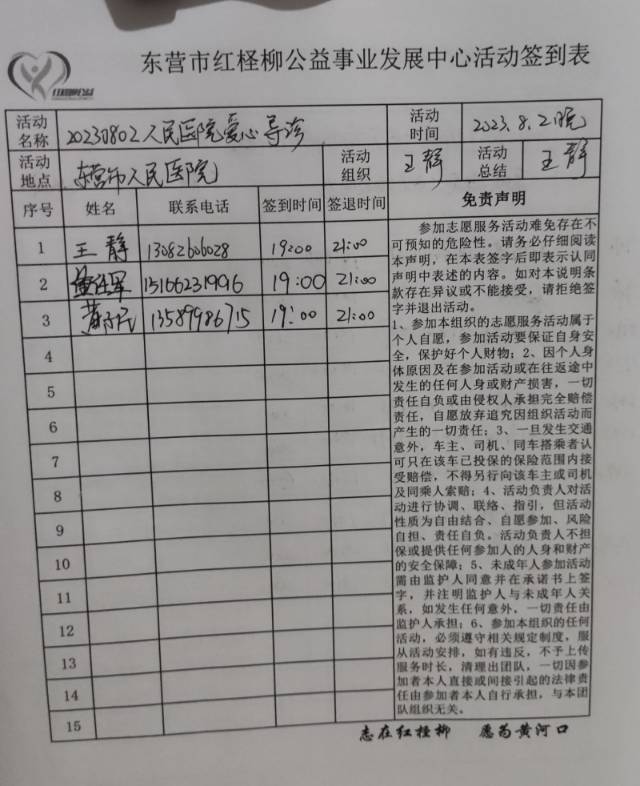 东营市红柽柳公益事业发展中心活动签到表
活动名称 20230802人民医院爱心导诊 活动时间 2023.8.2晚
活动地点 东营市人民医院 活动组织 王静 活动总结 王静
序号 姓名 联系电话 签到时间 签退时间 免责声明
1 王静 13082606028 19:00 21:00
2 13166231996 19:00 21:00
3 13589986715 19:00 21:00
4
5
6
7
8
9
10
11
12
13
14
15
参加志愿服务活动难免存在不
可预知的危险性。请务必仔细阅读
本声明,在本表签字后即表示认同
声明中表述的内容。如对本说明条
款存在异议或不能接受,请拒绝签
字并退出活动。
1、参加本组织的志愿服务活动属于
个人自愿,参加活动要保证自身安
全,保护好个人财物;2、因个人身
体原因及在参加活动或在往返途中
发生的任何人身或财产损害,一切
责任自负或由侵权人承担完全赔偿
责任,自愿放弃追究因组织活动而
产生的一切责任;3、一旦发生交通
意外,车主、司机、同车搭乘者认
可只在该车已投保的保险范围内接
受赔偿,不得另行向该车主或司机
及同乘人索赔;4、活动负责人对活
动进行协调、联络、指引,但活动
性质为自由结合、自愿参加、风险
自担、责任自负。活动负责人不担
保或提供任何参加人的人身和财产
的安全保障;5、未成年人参加活动
需由监护人同意并在承诺书上签
字,并注明监护人与未成年人关
系,如发生任何意外,一切责任由
监护人承担;6、参加本组织的任何
活动,必须遵守相关规定制度,服
从活动安排,如有违反,不予上传
服务时长,清理出团队,一切因参
加者本人直接或间接引起的法律责
任由参加者本人自行承担,与本团
队组织无关。
志在红柽柳 愿为黄河口